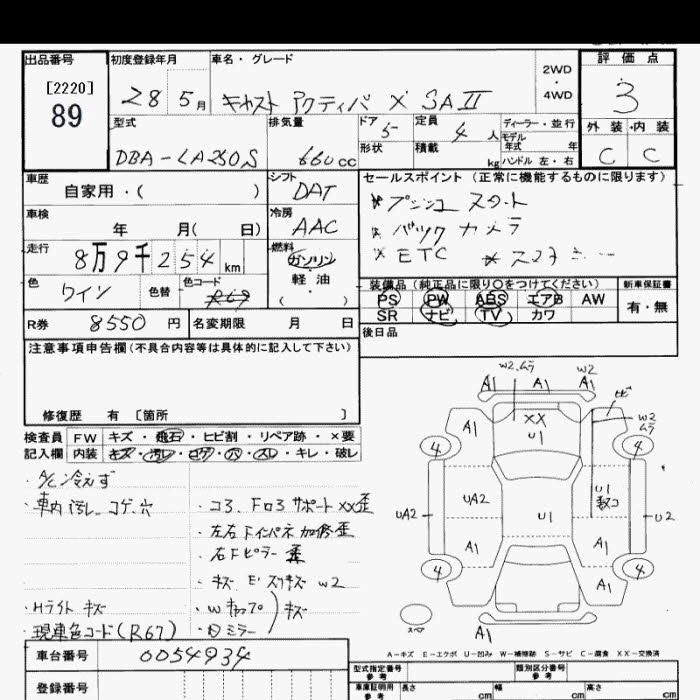 出品番号 初度登録年月 車名・グレード 評価点
[2220] 89
28 5月 キャスト アクティバ X SAⅡ
2WD
4WD
3
外装・内装
C C
型式 排気量 ドア 定員 ディーラー・並行
DBA-LA250S 660cc 5 4人
モデル年式 年
形状 積載 kg ハンドル 左・右
車歴 シフト セールスポイント (正常に機能するものに限ります)
自家用・( ) DAT
* プッシュ スタート
車検 冷房
年 月( 日) AAC
* バック カメラ
* ETC
走行 燃料
8万9千254km
ガソリン
軽油
( )
色 色替 色コード
ワイン R69
装備品 (純正品に限り○をつけてください) 新車保証書
PS PW ABS エアB AW
SR ナビ TV カワ
有・無
R券 8550円 名変期限 月 日
後日品
注意事項申告欄(不具合内容等は具体的に記入して下さい)
修復歴 有 〔箇所 〕
検査員 FW キズ・飛石・ヒビ割・リペア跡・×要
記入欄 内装 キズ・汚レ・コゲ・穴・スレ・キレ・破レ
・A/C冷えず
・車内 汚レ コゲ 穴
・コ3、Fロ3 サポートXX歪
・左右Fインパネ 加修歪
・右Fピラー 歪
・W2
・Hライト キズ
・現車色コード(R67)
・Wキャップ
・Dミラー
キズ
W2.ムラ
A1 A1 W2 A1
ヒビ
W2
ムラ
XX
U1
A1
4 4
UA2 UA2
U1
U1
U2
A1 A1
4 4
A1
スペア
A1
A-キズ E-エクボ U-凹み W-補修跡 S-サビ C-腐食 XX-交換済
車台番号 0054934
登録番号
型式指定番号 参考
類別区分番号 参考
車庫証明用 参考 長さ cm 幅 cm 高さ cm